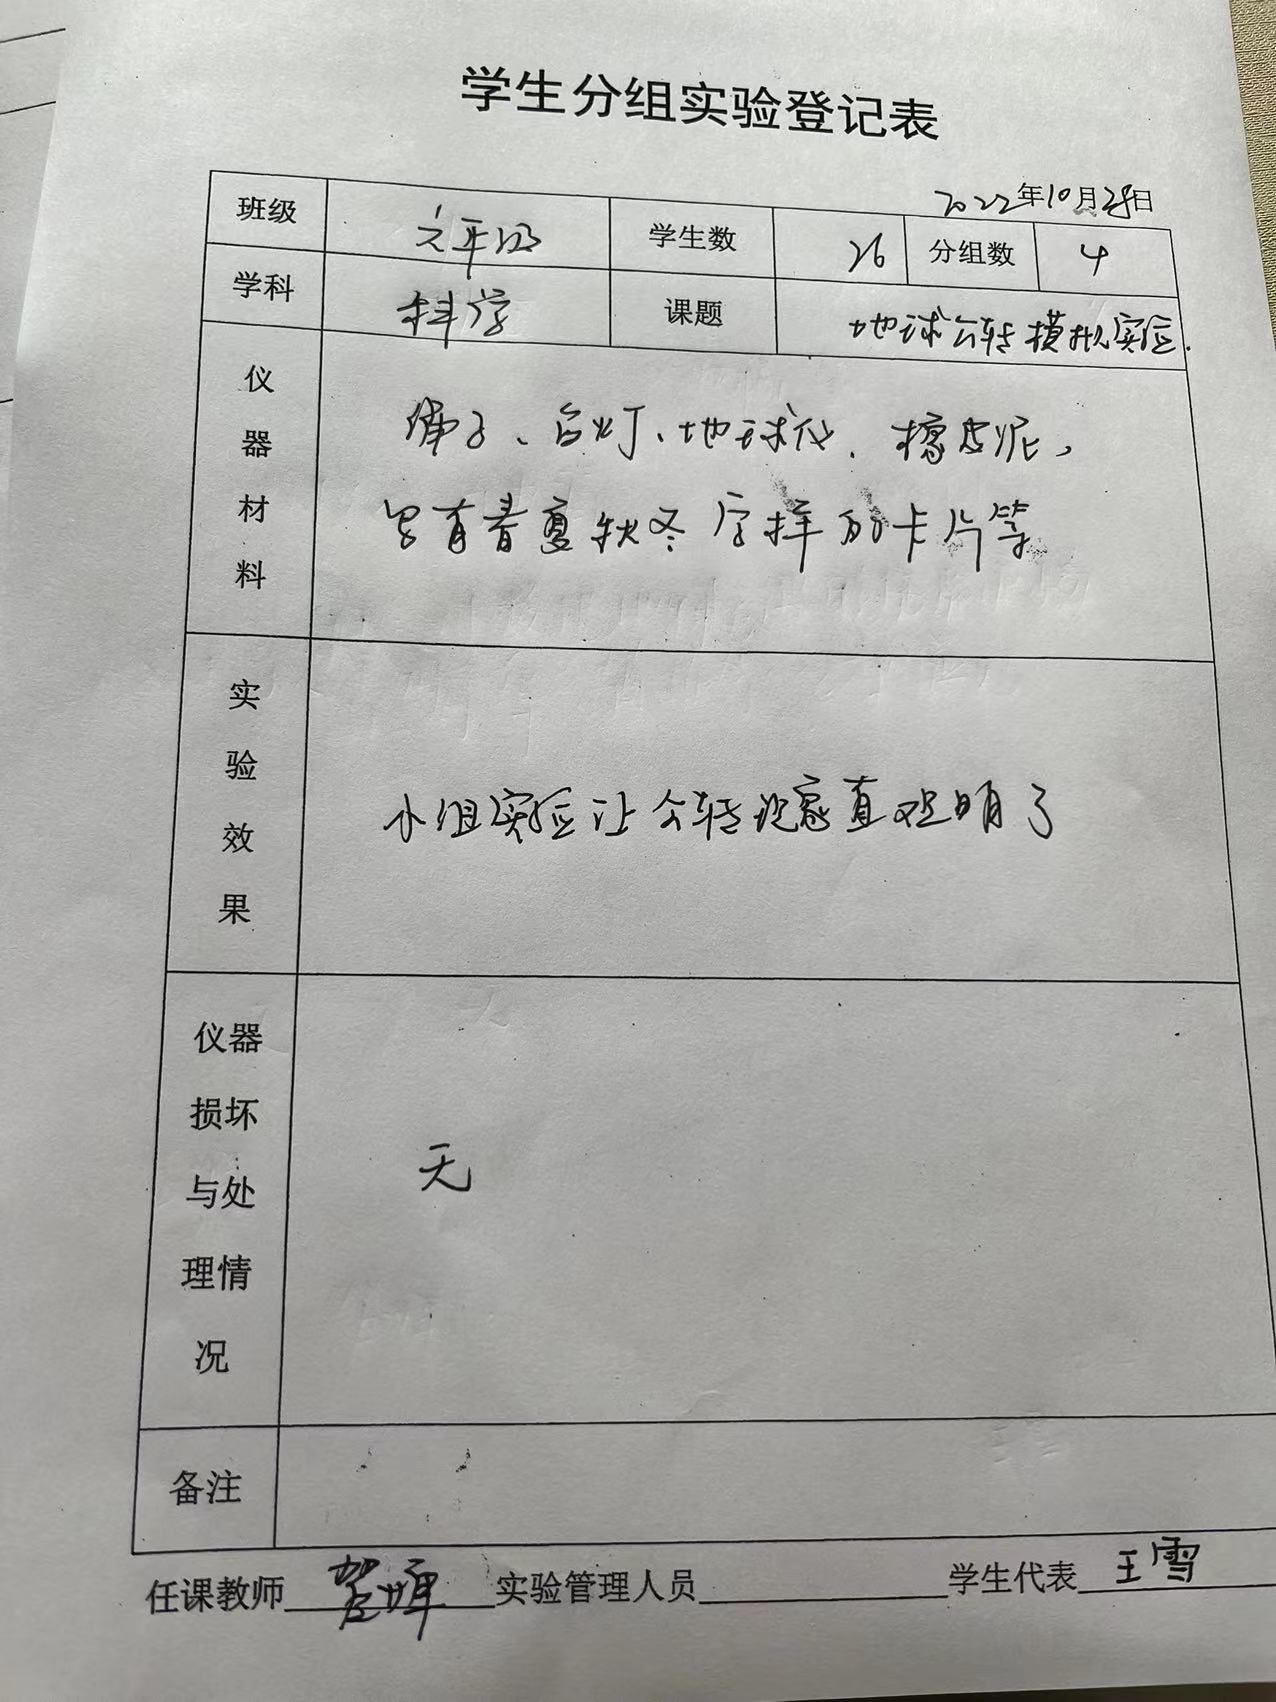 学生分组实验登记表
2022年10月25日
班级 六年级 学生数 26 分组数 4
学科 科学 课题 地球公转模拟实验.
仪器材料
绳子、台灯、地球仪、橡皮泥,
写有春夏秋冬字样的卡片等
实验效果
小组实验让公转现象直观明了
仪器损坏与处理情况
无
备注
任课教师 贺 实验管理人员 学生代表 王雪